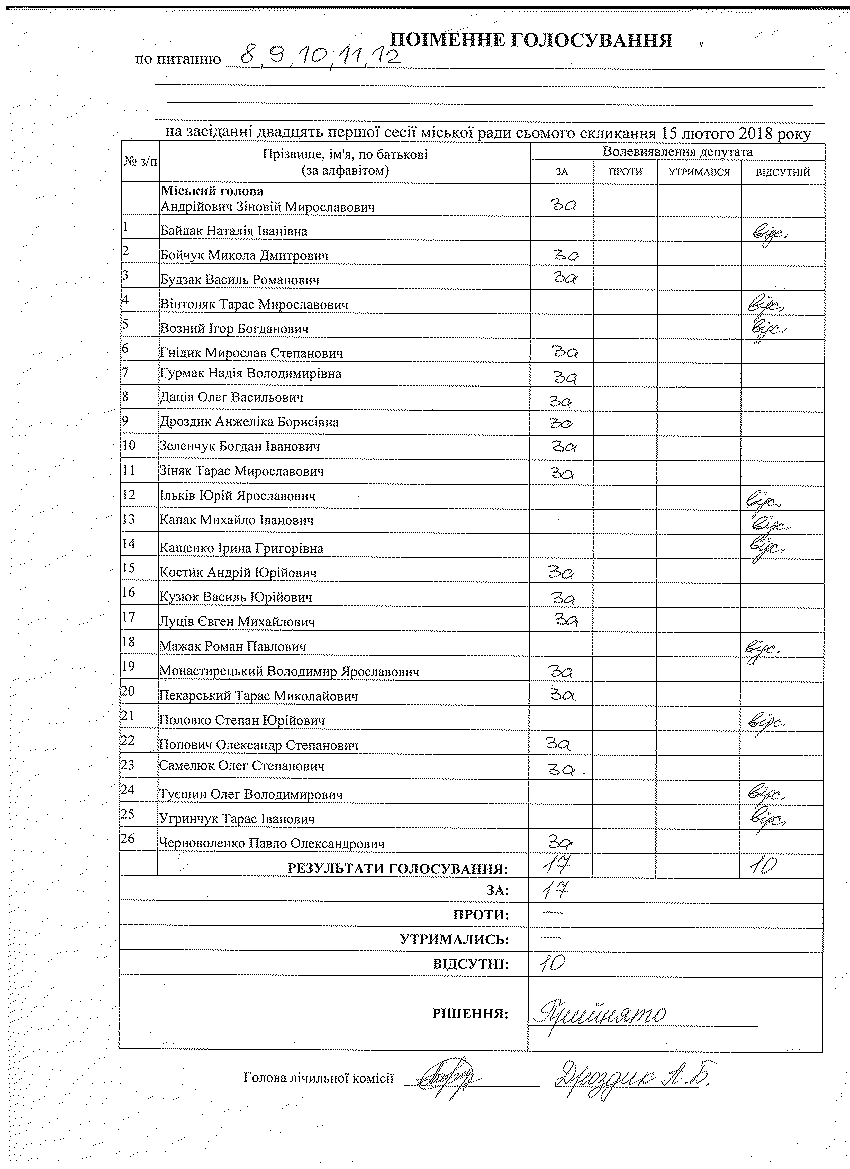 ПОІМЕННЕ ГОЛОСУВАННЯ
по питанню 8, 9, 10, 11, 12
на засіданні двадцять першої сесії міської ради сьомого скликання 15 лютого 2018 року
№ з/п Прізвище, ім'я, по батькові (за алфавітом) Волевиявлення депутата
ЗА ПРОТИ УТРИМАВСЯ ВІДСУТНІЙ
Міський голова
Андрійович Зіновій Мирославович За
1 Байдак Наталія Іванівна відс.
2 Бойчук Микола Дмитрович За
3 Будзак Василь Романович За
4 Вінтоняк Тарас Мирославович відс.
5 Возний Ігор Богданович відс.
6 Гнідик Мирослав Степанович За
7 Гурмак Надія Володимирівна За
8 Даців Олег Васильович За
9 Дроздик Анжеліка Борисівна За
10 Зеленчук Богдан Іванович За
11 Зіняк Тарас Мирославович За
12 Ільків Юрій Ярославович відс.
13 Капак Михайло Іванович відс.
14 Кащенко Ірина Григорівна відс.
15 Костик Андрій Юрійович За
16 Кузюк Василь Юрійович За
17 Луців Євген Михайлович За
18 Мажак Роман Павлович відс.
19 Монастирецький Володимир Ярославович За
20 Пекарський Тарас Миколайович За
21 Половко Степан Юрійович відс.
22 Попович Олександр Степанович За
23 Самелюк Олег Степанович За
24 Туєшин Олег Володимирович відс.
25 Угринчук Тарас Іванович відс.
26 Черноволенко Павло Олександрович За
РЕЗУЛЬТАТИ ГОЛОСУВАННЯ: 17 10
ЗА: 17
ПРОТИ: —
УТРИМАЛИСЬ: —
ВІДСУТНІ: 10
РІШЕННЯ: Прийнято
Голова лічильної комісії Дроздик А.Б.